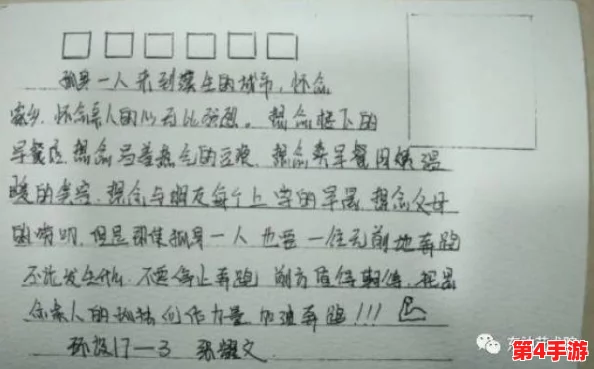 孤身一人来到陌生的城市，怀念
家乡，怀念亲人的心无比强烈。想念楼下的
早餐店，想念冒着热气的豆浆，想念卖早餐阿姨温
暖的笑容，想念与朋友每个上学的早晨，想念父母
的唠叨，但是即使孤身一人也要一往无前地奔跑
不论发生什么，不要停止奔跑，前方值得期待，把思
念亲人的孤独化作力量加速奔跑！！！
环设17—3 张耀文
第4手游